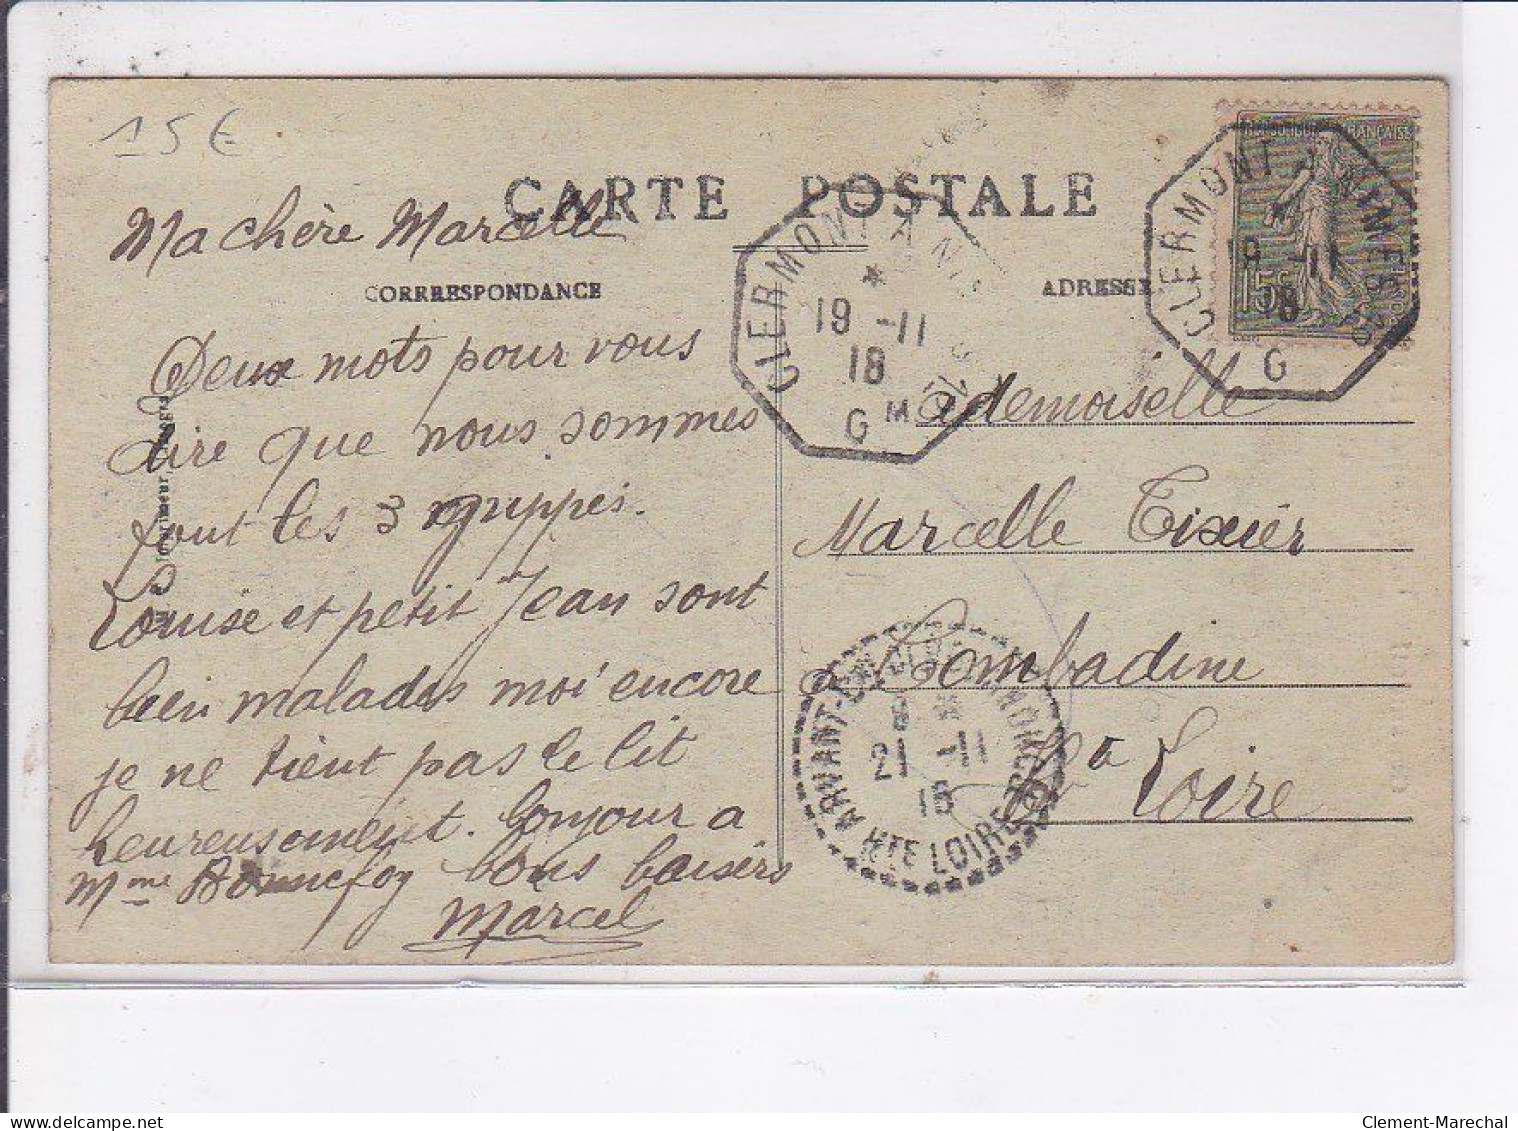 15€
CARTE POSTALE
CORRESPONDANCE
ADRESSE
Ma chère Marcelle
Deux mots pour vous
dire que nous sommes
tout les 3 grippés.
Louise et petit Jean sont
bien malades moi encore
je ne tient pas le lit
heureusement. bonjour a
Mme Bonnefoy bons baisers
Marcel
Mademoiselle
Marcelle Tixier
à Combadine
Hte Loire
RÉPUBLIQUE FRANÇAISE
15c
CLERMONT A NIMES
19 -11
18
G
CLERMONT A NIMES
19 -11
18
G
ARVANT
21 -11
18
HTE LOIRE
Imprimeur
delcampe.net
Clement-Marechal